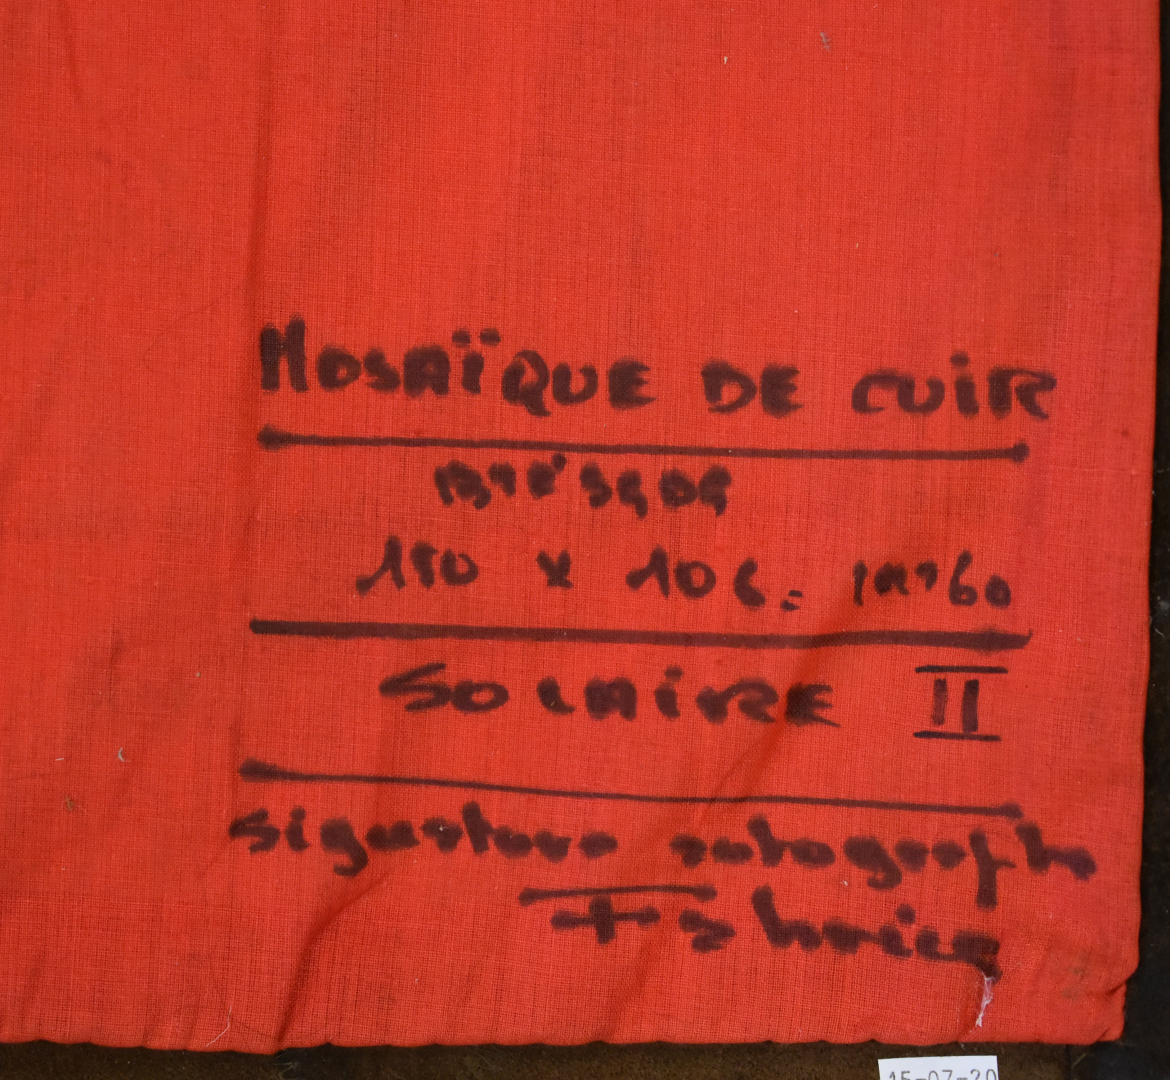 MOSAÏQUE DE CUIR
150 x 106 =
SOLAIRE II
signature autographe
15-07-20